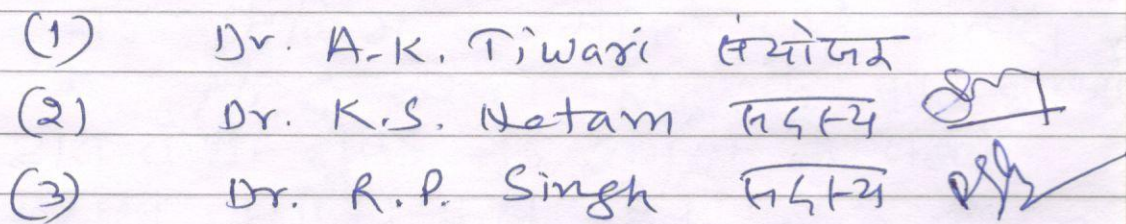 (1) Dr. A.K. Tiwari संयोजक
(2) Dr. K.S. Netam सदस्य
(3) Dr. R.P. Singh सदस्य